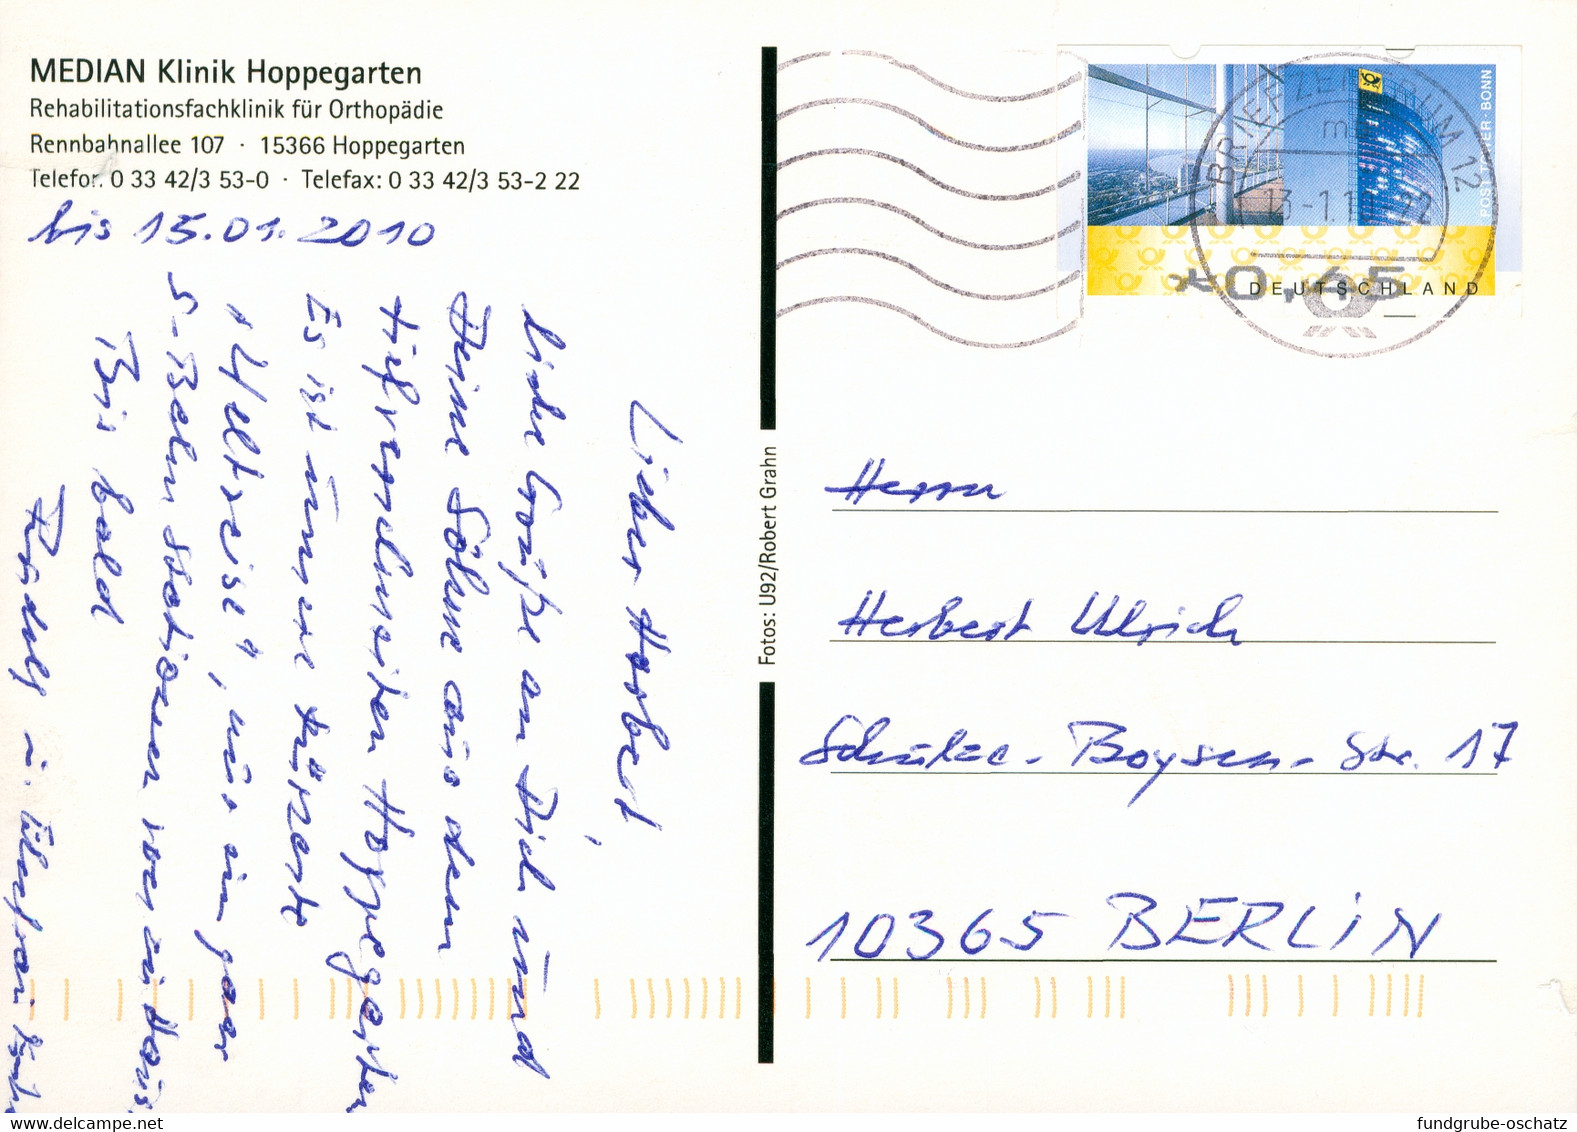 MEDIAN Klinik Hoppegarten
Rehabilitationsfachklinik für Orthopädie
Rennbahnallee 107 · 15366 Hoppegarten
Telefon 0 33 42/3 53-0 · Telefax: 0 33 42/3 53-2 22
bis 15.01.2010
Lieber Herbert,
liebe Grüße an Dich und
Deine Söhne aus dem
tiefverschneiten Hoppegarten
Es ist unsere kürzeste
"Weltreise", nur ein paar
S-Bahnstationen von zu Haus.
Bis bald
Rudolf u.
Fotos: U92/Robert Grahn
BRIEFZENTRUM 12
13-1.10-22
POST TOWER · BONN
*0,65
DEUTSCHLAND
Herrn
Herbert Ulrich
Schulze-Boysen-Str. 17
10365 BERLIN
fundgrube-oschatz